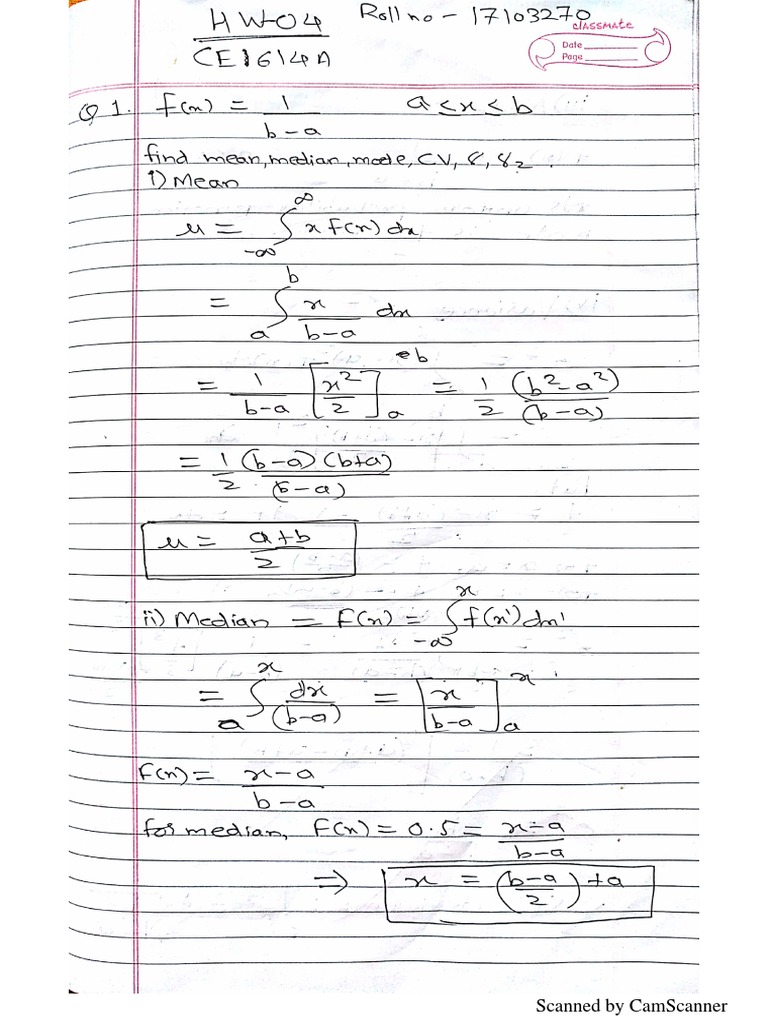 HW-04
Roll no - 17103270
CE1614A
classmate
Date
Page
Q1. f(x) = 1/(b-a) a ≤ x ≤ b
find mean, median, mode, CV, γ, γ2.
i) Mean
μ = ∫_{-∞}^{∞} x f(x) dx
= ∫_a^b x/(b-a) dx
= 1/(b-a) [x²/2]_a^b = 1/2 (b²-a²)/(b-a)
= 1/2 (b-a)(b+a)/(b-a)
μ = (a+b)/2
ii) Median = F(x) = ∫_{-∞}^x f(x')dx'
= ∫_a^x dx/(b-a) = [x/(b-a)]_a^x
F(x) = (x-a)/(b-a)
for median, F(x) = 0.5 = (x-a)/(b-a)
⇒ x = ((b-a)/2) + a
Scanned by CamScanner